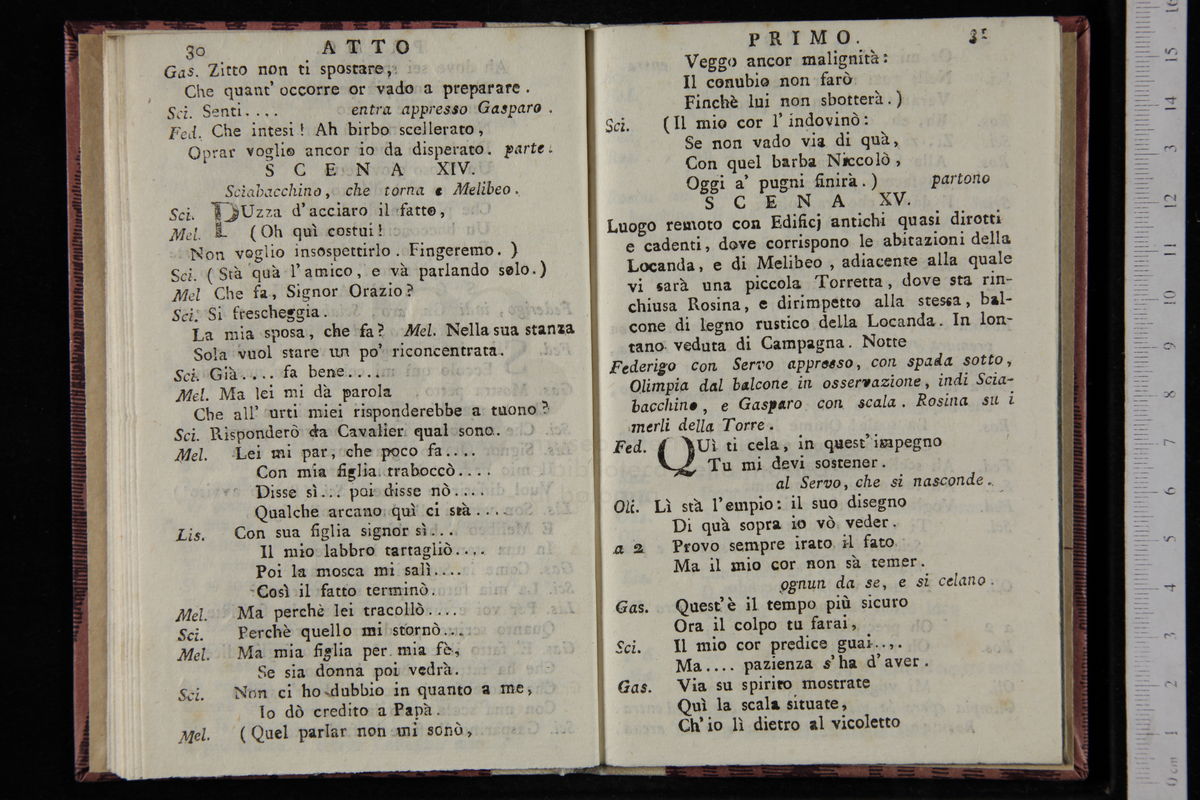 30 ATTO
Gas. Zitto non ti spostare,
Che quant' occorre or vado a preparare.
Sci. Senti.... entra appresso Gasparo.
Fed. Che intesi! Ah birbo scellerato,
Oprar voglio ancor io da disperato. parte.
SCENA XIV.
Sciabacchino, che torna e Melibeo.
Sci. PUzza d'acciaro il fatto,
Mel. (Oh quì costui!
Non voglio insospettirlo. Fingeremo. )
Sci. (Stà quà l'amico, e và parlando solo.)
Mel Che fa, Signor Orazio?
Sci. Si frescheggia.
La mia sposa, che fa? Mel. Nella sua stanza
Sola vuol stare un po' riconcentrata.
Sci. Già.... fa bene....
Mel. Ma lei mi dà parola
Che all' urti miei risponderebbe a tuono?
Sci. Risponderò da Cavalier qual sono.
Mel. Lei mi par, che poco fa....
Con mia figlia traboccò....
Disse sì... poi disse nò....
Qualche arcano quì ci stà....
Lis. Con sua figlia signor sì...
Il mio labbro tartagliò....
Poi la mosca mi salì....
Così il fatto terminò.
Mel. Ma perchè lei tracollò....
Sci. Perchè quello mi stornò...
Mel. Ma mia figlia per mia fè,
Se sia donna poi vedrà.
Sci. Non ci ho dubbio in quanto a me,
Io dò credito a Papà.
Mel. (Quel parlar non mi sonò,
PRIMO. 31
Veggo ancor malignità:
Il conubio non farò
Finchè lui non sbotterà.)
Sci. (Il mio cor l'indovinò:
Se non vado via di quà,
Con quel barba Niccolò,
Oggi a' pugni finirà.) partono
SCENA XV.
Luogo remoto con Edificj antichi quasi dirotti
e cadenti, dove corrispono le abitazioni della
Locanda, e di Melibeo, adiacente alla quale
vi sarà una piccola Torretta, dove sta rin-
chiusa Rosina, e dirimpetto alla stessa, bal-
cone di legno rustico della Locanda. In lon-
tano veduta di Campagna. Notte
Federigo con Servo appresso, con spada sotto,
Olimpia dal balcone in osservazione, indi Scia-
bacchino, e Gasparo con scala. Rosina su i
merli della Torre.
Fed. QUì ti cela, in quest'impegno
Tu mi devi sostener.
al Servo, che si nasconde.
Oli. Lì stà l'empio: il suo disegno
Di quà sopra io vò veder.
a 2 Provo sempre irato il fato
Ma il mio cor non sà temer.
ognun da se, e si celano.
Gas. Quest'è il tempo più sicuro
Ora il colpo tu farai,
Sci. Il mio cor predice guai....
Ma.... pazienza s'ha d'aver.
Gas. Via su spirito mostrate
Quì la scala situate,
Ch'io lì dietro al vicoletto